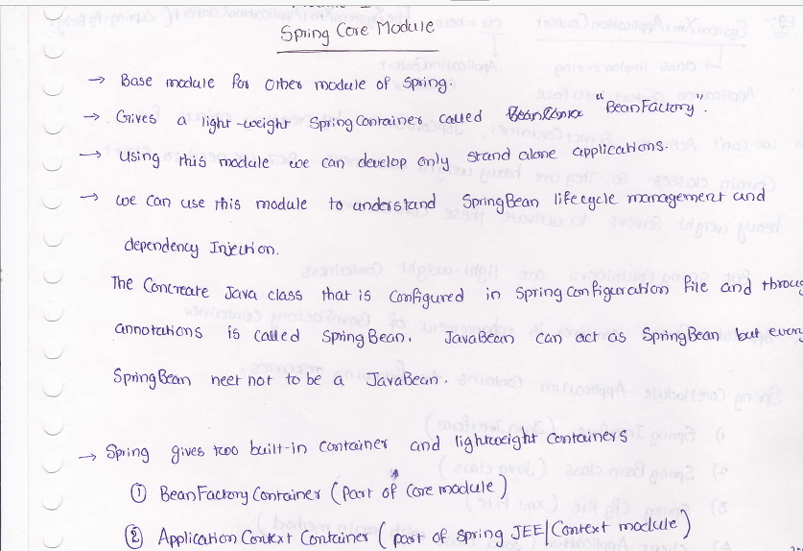 Spring Core Module
→ Base module for other module of Spring.
→ Gives a light-weight Spring Container called "BeanFactory".
→ Using this module we can develop only stand alone applications.
→ we can use this module to understand SpringBean lifecycle management and
dependency Injection.
The Concreate Java class that is configured in Spring Configuration file and throug
annotations is called SpringBean. JavaBean can act as SpringBean but every
SpringBean neet not to be a JavaBean.
→ Spring gives two built-in container and lightweight containers
① BeanFactory Container (part of core module)
② Application Context Container (part of spring JEE/Context module)